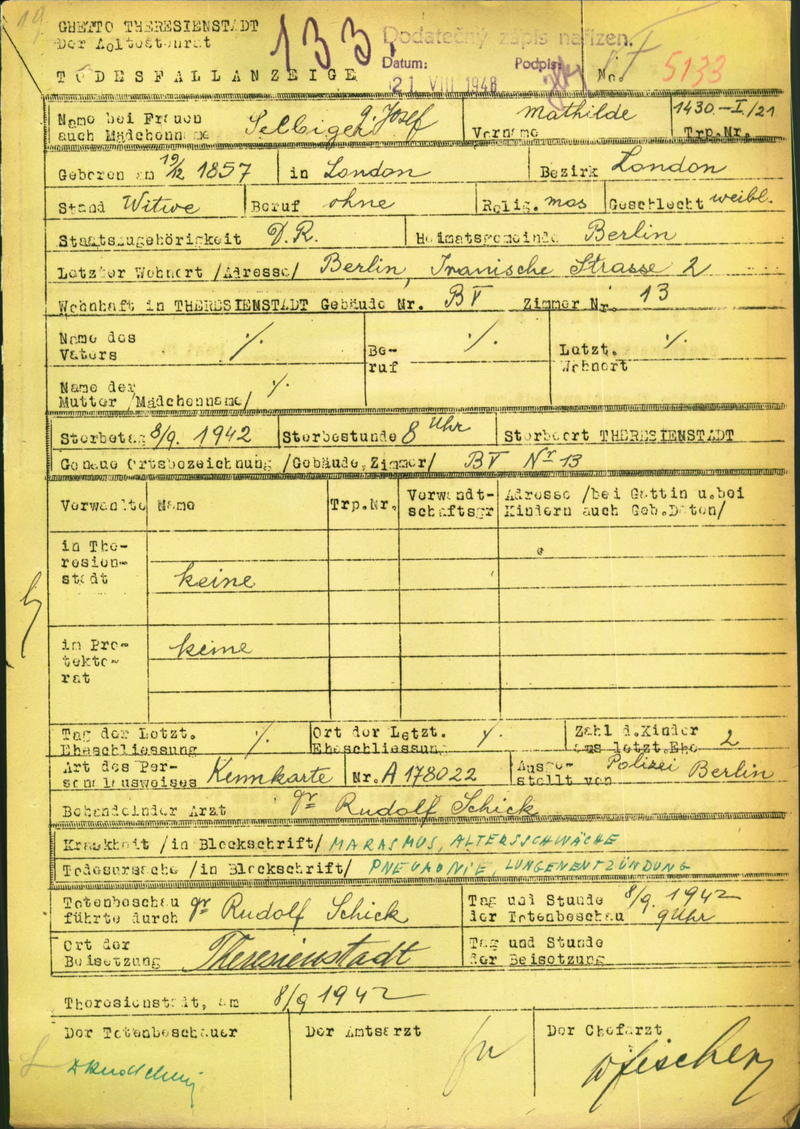 GHETTO THERESIENSTADT
Der Aeltestenrat
133
Dodatečný zápis nařízen.
Datum: Podpis:
21 VIII 1948
TODESFALLANZEIGE
No. 5133
Name bei Frauen auch Mädchenname Selbiger g. Josef
Vorname Mathilde
1430-I/21 Trp.Nr.
Geboren am 19/12 1857 in London Bezirk London
Stand Witwe Beruf ohne Relig. mos Geschlecht weibl.
Staatszugehörigkeit D.R. Heimatsgemeinde Berlin
Letzter Wohnort /Adresse/ Berlin, Iranische Strasse 2
Wohnhaft in THERESIENSTADT Gebäude Nr. BV Zimmer Nr. 13
Name des Vaters ·/. Be-ruf ·/. Letzt. Wohnort ·/.
Name der Mutter /Mädchenname/ ·/.
Sterbetag 8/9. 1942 Sterbestunde 8 Uhr Sterbeort THERESIENSTADT
Genaue Ortsbezeichnung /Gebäude, Zimmer/ BV Nr 13
Verwandte Name Trp.Nr. Verwandt-schaftsgr Adresse /bei Gattin u.bei Kindern auch Geb.Daten/
in The-resien-stadt keine
in Pro-tekto-rat keine
Tag der Letzt. Eheschliessung ·/. Ort der Letzt. Eheschliessung ·/. Zahl d.Kinder aus letzt.Ehe 2
Art des Per-sonalausweises Kennkarte Nr. A 178022 Ausge-stellt von Polizei Berlin
Behandelnder Arzt Dr Rudolf Schick
Krankheit /in Blockschrift/ MARASMUS, ALTERSSCHWÄCHE
Todesursache /in Blockschrift/ PNEUMONIE, LUNGENENTZÜNDUNG
Totenbeschau führte durch Dr Rudolf Schick Tag und Stunde der Totenbeschau 8/9. 1942 9 Uhr
Ort der Beisetzung Theresienstadt Tag und Stunde der Beisetzung
Theresienstadt, am 8/9 1942
Der Totenbeschauer Der Amtsarzt Der Chefarzt
Fischer